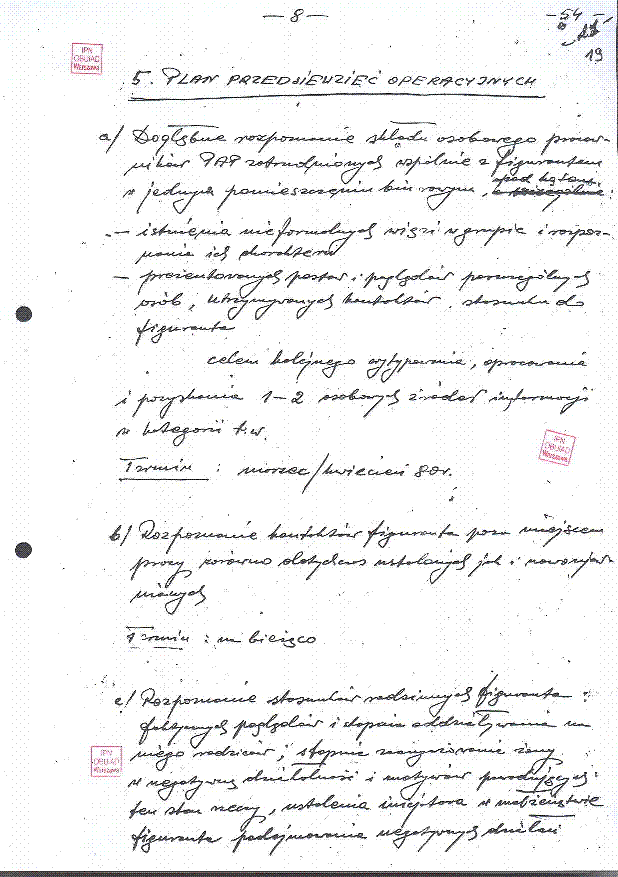 — 8 —
— 54 —
19
IPN
OBUiAD
Warszawa
5. PLAN PRZEDSIEWZIĘĆ OPERACYJNYCH
a/ Dogłębne rozpoznanie składu osobowego pracow-
ników PAP zatrudnionych wspólnie z figurantem
w jednym pomieszczeniu biurowym, pod kątem:
— istnienia nieformalnych więzi w grupie i rozpoz-
nania ich charakteru
— prezentowanych postaw i poglądów poszczególnych
osób, utrzymywanych kontaktów, stosunku do
figuranta
celem kolejnego wytypowania, opracowania
i pozyskania 1-2 osobowych źródeł informacji
w kategorii t.w.
IPN
OBUiAD
Warszawa
Termin : marzec/kwiecień 80r.
b/ Rozpoznanie kontaktów figuranta poza miejscem
pracy zarówno dotychczas ustalonych jak i nowonawią-
zanych
Termin : na bieżąco
c/ Rozpoznanie stosunków rodzinnych figuranta :
faktycznych poglądów i stopnia oddziaływania na
niego rodziców; stopnia zaangażowania żony
IPN
OBUiAD
Warszawa
w negatywną działalność i motywów powodujących
ten stan rzeczy, ustalenia inicjatora w małżeństwie
figuranta podejmowania negatywnych działań